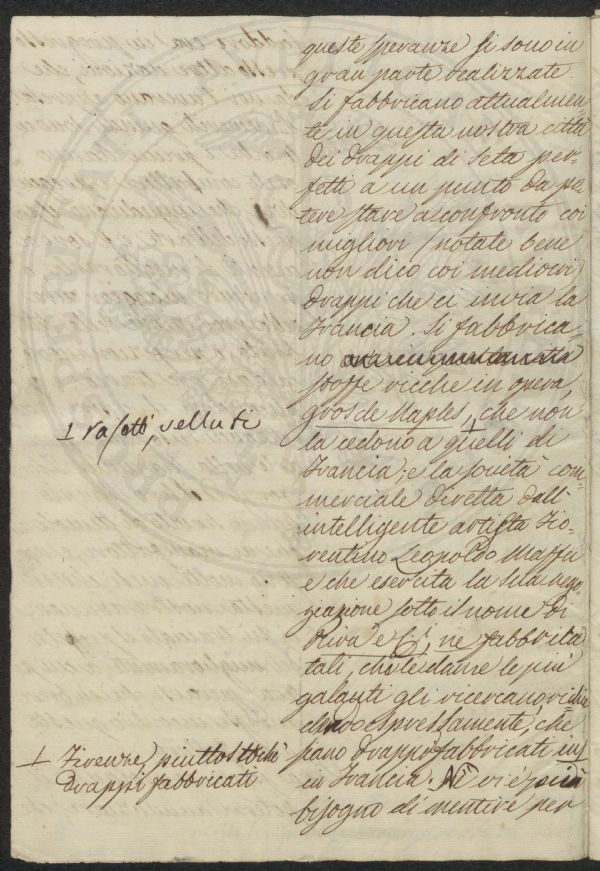 queste speranze si sono in
gran parte realizzate.
Si fabbricano attualmen-
te in questa nostra città
dei drappi di seta per-
fetti a un punto da po-
tere stare a confronto coi
migliori (notate bene
non dico coi mediocri)
drappi che ci invia la
Francia. Si fabbrica-
no
stoffe ricche in opera,
gros de Naples, ⊥ che non
la cedono a quelli di
Francia; e la società com-
merciale diretta dall'
intelligente artista Fio-
rentino Leopoldo Maffei
e che esercita la sua nego-
ziazione sotto il nome di
Riva e C.i, ne fabbrica
tali, che le dame le più
galanti gli ricercano
espressamente, che
siano drappi fabbricati in ⊥
in Francia. Nè vi è più
bisogno di mentire per
⊥ rasetti, velluti
⊥ Firenze, piuttostochè
drappi fabbricati